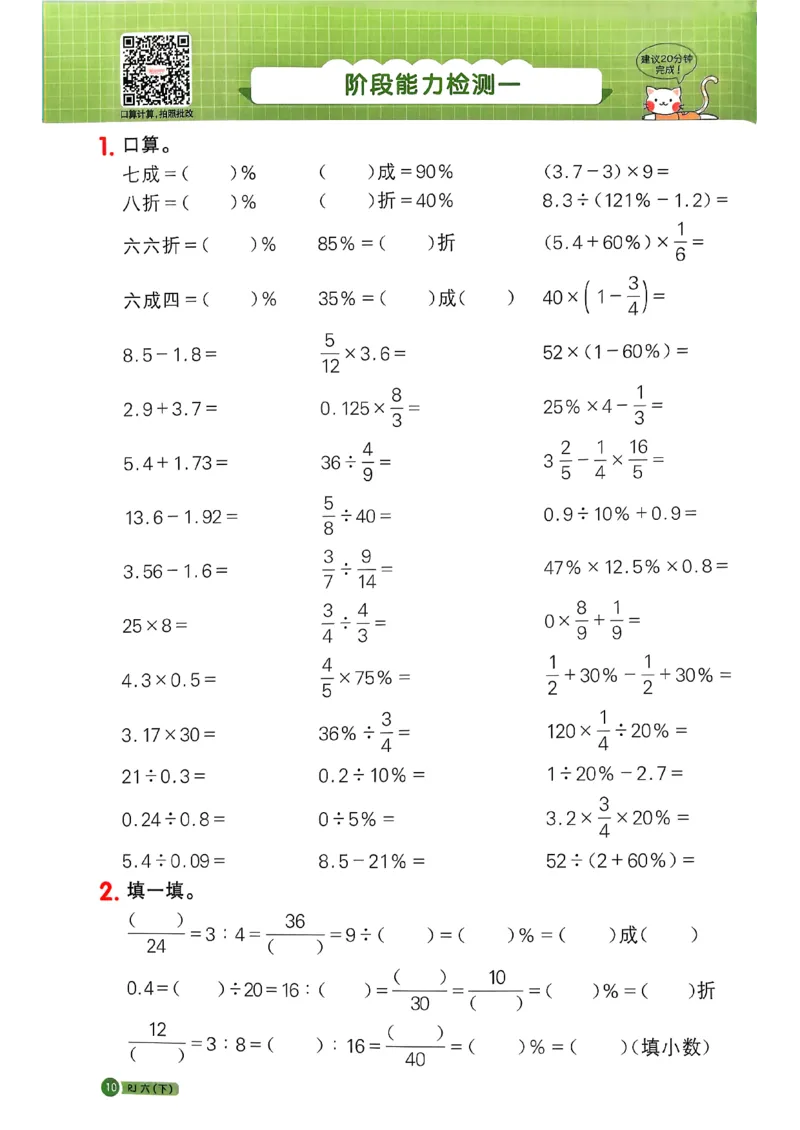 建议20分钟
完成！
阶段能力检测一
口算计算,拍照批改
1. 口算。
七成=( )% ( )成=90% (3.7-3)×9=
八折=( )% ( )折=40% 8.3÷(121%-1.2)=
六六折=( )% 85%=( )折 (5.4+60%)×1/6=
六成四=( )% 35%=( )成( ) 40×(1-3/4)=
8.5-1.8= 5/12×3.6= 52×(1-60%)=
2.9+3.7= 0.125×8/3= 25%×4-1/3=
5.4+1.73= 36÷4/9= 3 2/5-1/4×16/5=
13.6-1.92= 5/8÷40= 0.9÷10%+0.9=
3.56-1.6= 3/7÷9/14= 47%×12.5%×0.8=
25×8= 3/4÷4/3= 0×8/9+1/9=
4.3×0.5= 4/5×75%= 1/2+30%-1/2+30%=
3.17×30= 36%÷3/4= 120×1/4÷20%=
21÷0.3= 0.2÷10%= 1÷20%-2.7=
0.24÷0.8= 0÷5%= 3.2×3/4×20%=
5.4÷0.09= 8.5-21%= 52÷(2+60%)=
2. 填一填。
( )/24=3:4=36/( )=9÷( )=( )%=( )成( )
0.4=( )÷20=16:( )=( )/30=10/( )=( )%=( )折
12/( )=3:8=( ):16=( )/40=( )%=( )(填小数)
10 RJ 六(下)